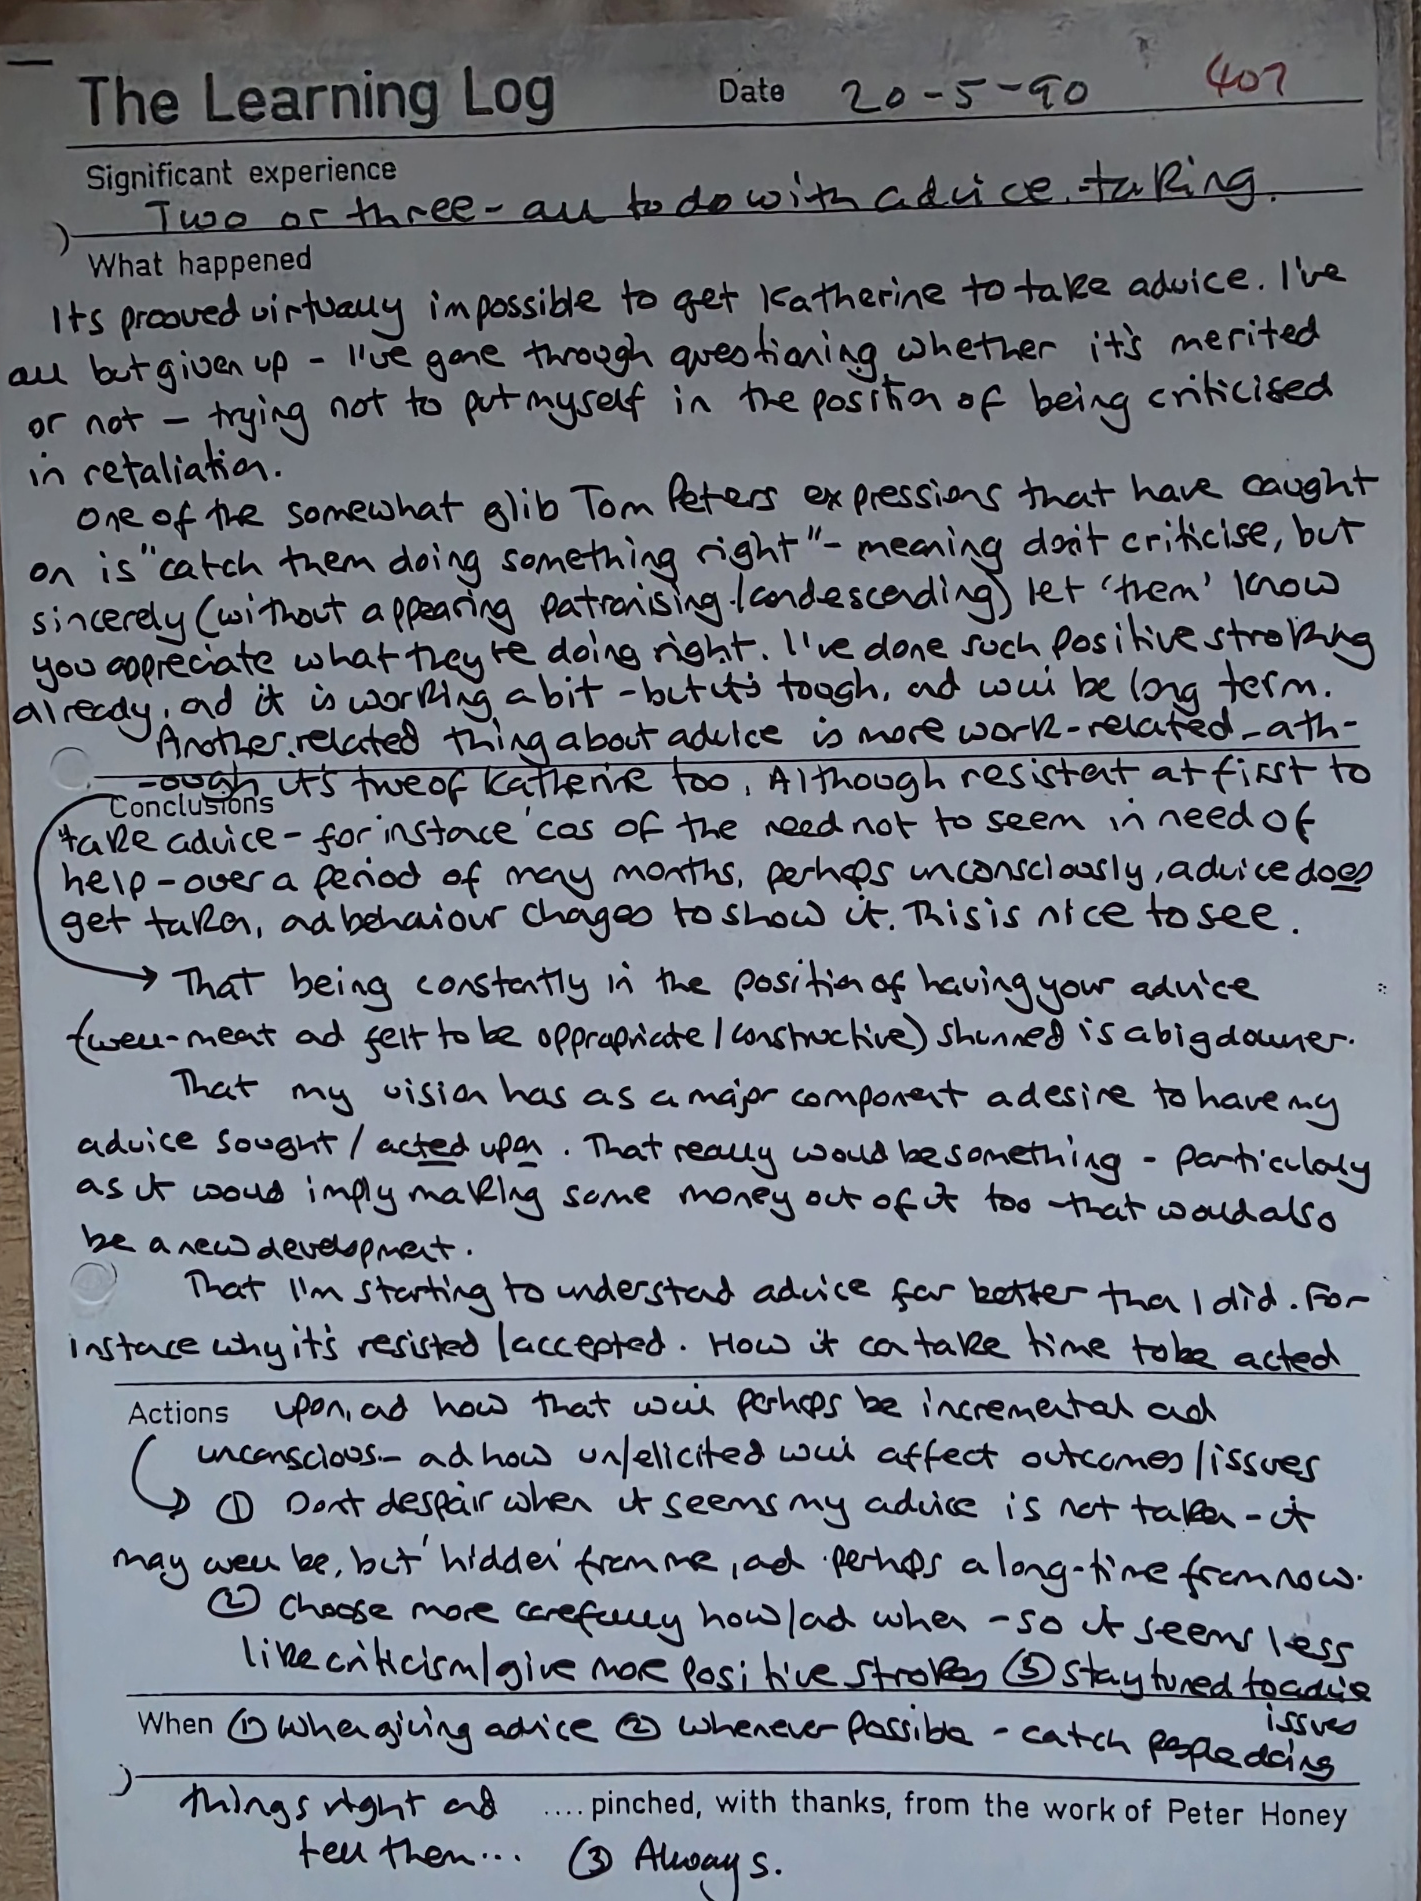 The Learning Log Date 20-5-90 407
Significant experience
Two or three - all to do with advice-taking.
What happened
Its prooved virtually impossible to get Katherine to take advice. I've
all but given up - I've gone through questioning whether it's merited
or not - trying not to put myself in the position of being criticised
in retaliation.
One of the somewhat glib Tom Peters expressions that have caught
on is "catch them doing something right" - meaning don't criticise, but
sincerely (without appearing patronising/condescending) let 'them' know
you appreciate what they're doing right. I've done such positive stroking
already, and it is working a bit - but it's tough, and will be long term.
Another related thing about advice is more work-related - alth-
-ough it's true of Katherine too. Although resistant at first to
Conclusions
take advice - for instance 'cos of the need not to seem in need of
help - over a period of many months, perhaps unconsciously, advice does
get taken, and behaviour changes to show it. This is nice to see.
→ That being constantly in the position of having your advice
(well-meant and felt to be appropriate/constructive) shunned is a big downer.
That my vision has as a major component a desire to have my
advice sought / acted upon. That really would be something - particularly
as it would imply making some money out of it too - that would also
be a new development.
That I'm starting to understand advice far better than I did. For
instance why it's resisted/accepted. How it can take time to be acted
Actions upon, and how that will perhaps be incremental and
unconscious - and how un/elicited will affect outcomes/issues
→ ① Dont despair when it seems my advice is not taken - it
may well be, but 'hidden' from me, and perhaps a long-time from now.
② Choose more carefully how/and when - so it seems less
like criticism/give more positive strokes ③ stay tuned to advice
issues
When ① When giving advice ② whenever possible - catch people doing
things right and .... pinched, with thanks, from the work of Peter Honey
tell them... ③ Always.